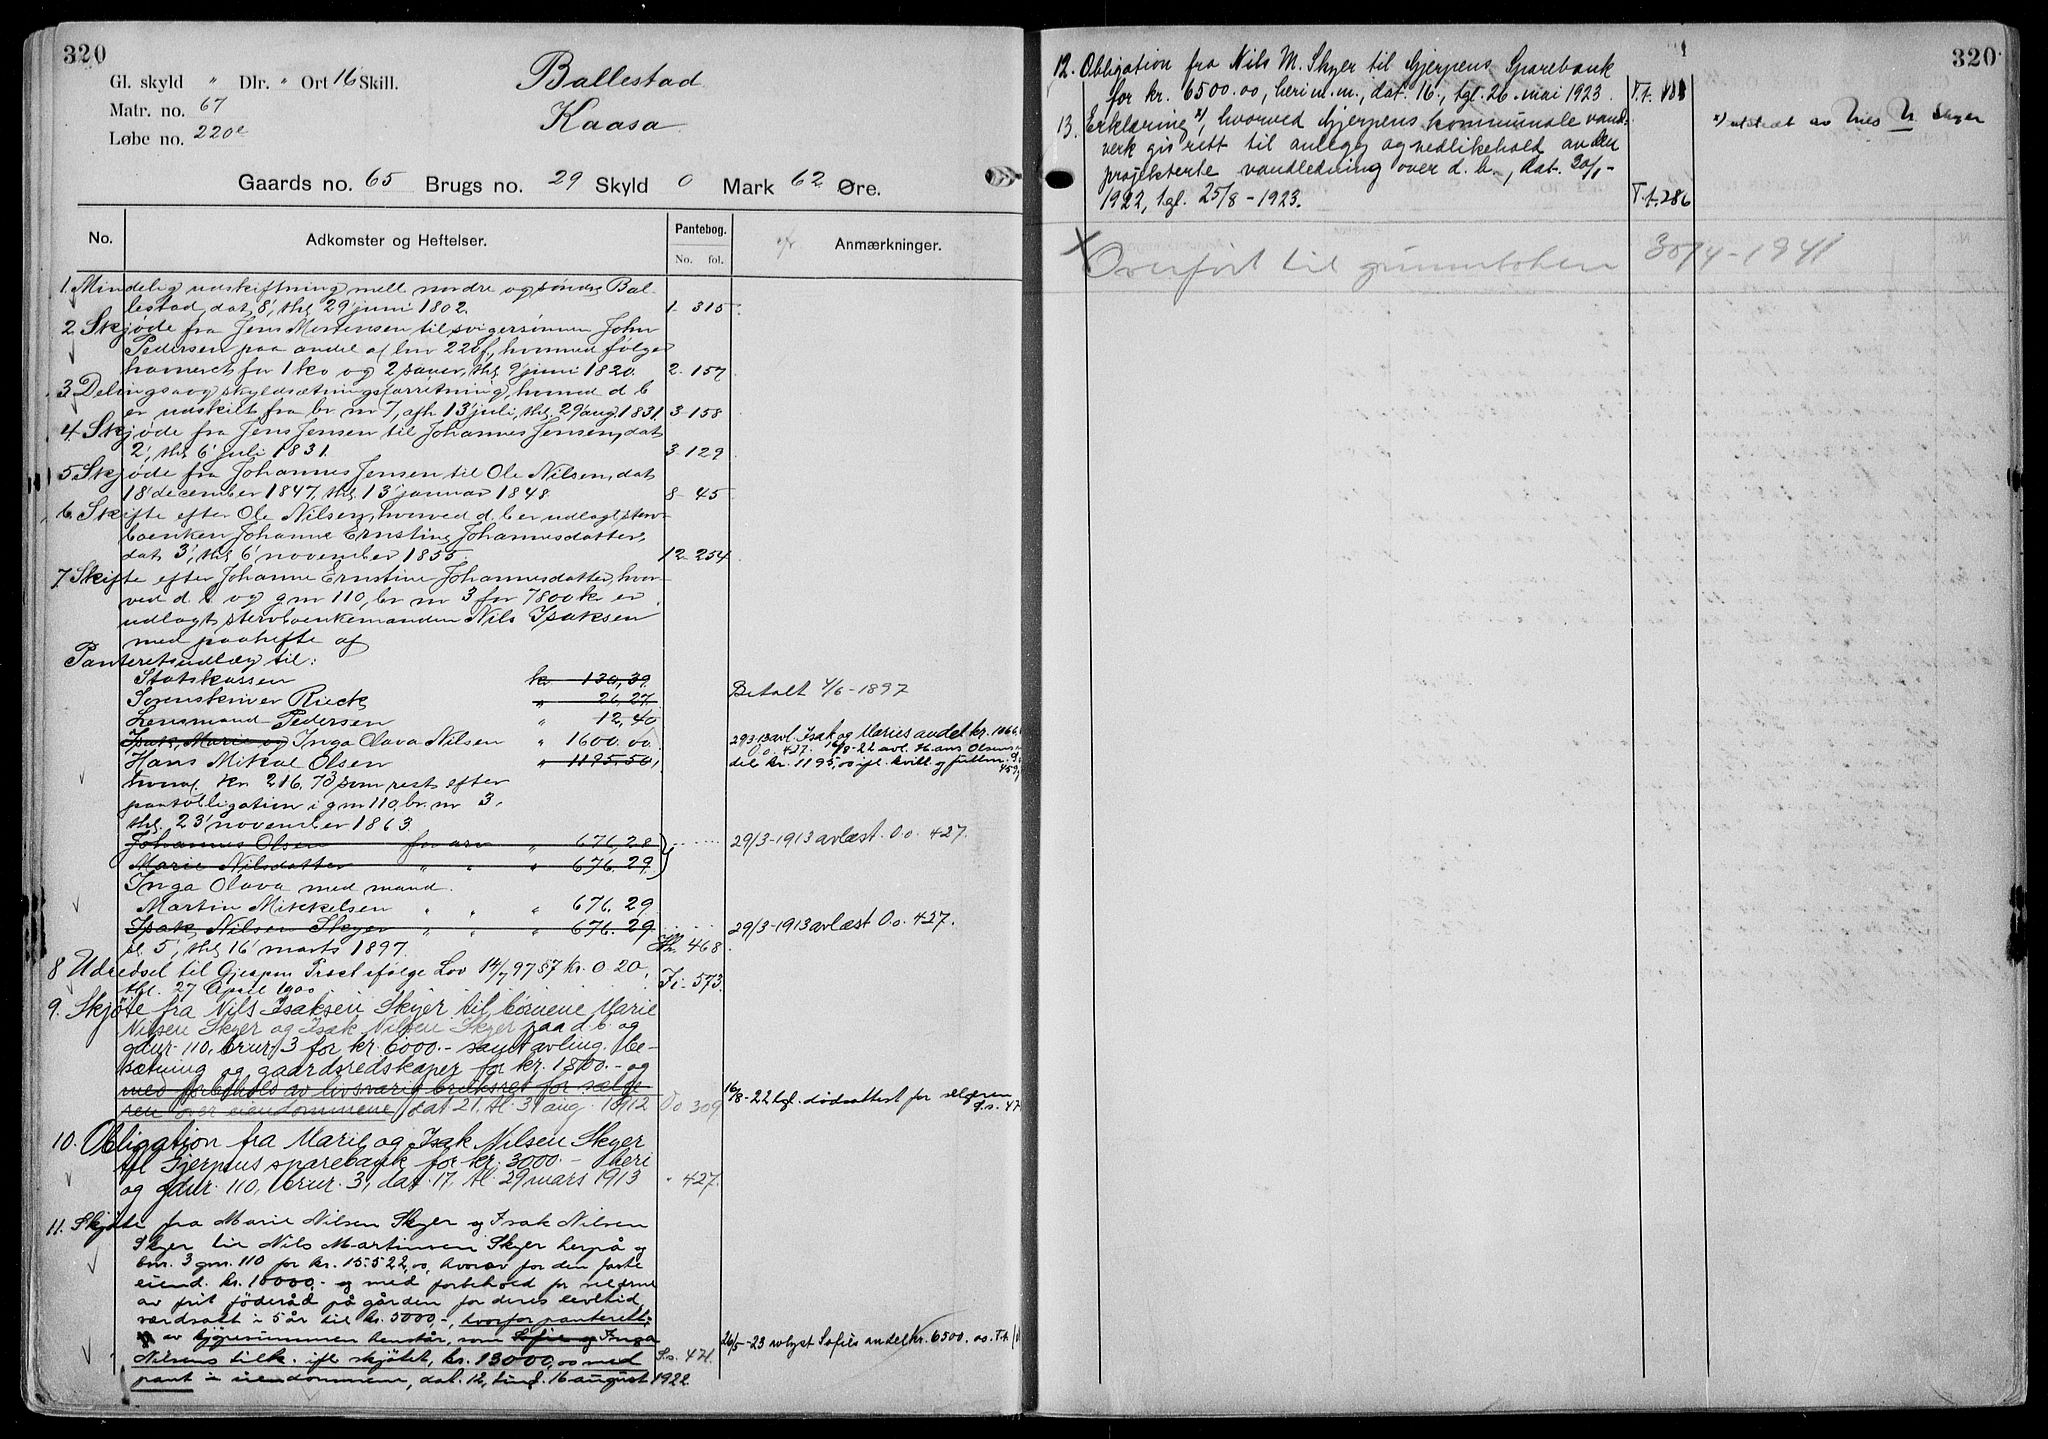 320
Gl. skyld " Dlr. " Ort 16 Skill.
Matr. no. 67
Løbe no. 220e
Ballestad
Kaasa
Gaards no. 65 Brugs no. 29 Skyld 0 Mark 62 Øre.
No. Adkomster og Heftelser. Pantebog. Anmærkninger.
No. fol.
1. Mindelig udskiftning mell nordre og søndre Bal-
lestad, dat 8', thl 29' juni 1802. 1- 315
2 Skjøde fra Jens Mortensen til svigersønnen John
Pedersen paa andel af lnr 220f, hvormed følger
havneret for 1 ko og 2 sauer, thl 9' juni 1820. 2- 157
3 Delings og skyldsætningsforretning, hvorved d b
er udskilt fra br nr 7, afh 13' juli, thl. 29' aug. 1831. 3- 158
4 Skjøde fra Jens Jensen til Johannes Jensen, dat
2', thl 6' juli 1831. 3- 129
5 Skjøde fra Johannes Jensen til Ole Nilsen, dat
18' december 1847, thl 13' januar 1848. 8- 45
6. Skifte efter Ole Nilsen, hvorved d. b er udlagt sterv-
boenken Johanne Ernstine Johannesdatter,
dat 3', thl 6' november 1855. 12- 254
7 Skifte efter Johanne Ernstine Johannesdatter, hvor-
ved d. b og g nr 110, br nr 3 for 7800 kr er
udlagt stervboenkemanden Nils Isaksen
med paahefte af
Panteretsudlæg til:
Statskassen kr 130,39
Sorenskriver Rieck " 26,27. Betalt 4/6-1897
Lensmand Pedersen " 12,40
Isak, Marie og Inga Olava Nilsen " 1600.00. 29 3-13 avl. Isak og Maries andel kr. 1066
Oo. 427. 16/8-22 avl. Hans Olsens
Hans Mikal Olsen " 1195.50, del kr. 1195,00 ifl. kvitt.
hvoraf kr 216,73 som rest efter
pantobligation i g nr 110, br. nr 3,
thl. 23' november 1863.
Johannes Olsen for arv " 676,28 29/3-1913 avlæst. Oo. 427.
Marie Nilsdatter " " " 676.29
Inga Olava med mand
Martin Mikkelsen " " " 676. 29
Isak Nilsen Skyer " " " 676. 29 29/3-1913 avlæst Oo. 427.
5', thl 16' marts 1897. 468
8 Udredsel til Gjerpen Præst ifølge Lov 14/7 97 § 7 Kr. 0.20,
thl. 27 April 1900 Fi- 573.
9. Skjøte fra Nils Isaksen Skyer til børnene Marie
Nilsen Skyer og Isak Nilsen Skyer paa d. b. og
gdnr. 110, brnr. 3 for kr. 6000.- samt avling, be-
sætning og gaardsredskaper for kr. 1800.- og
med forbehold av livsvarig bruksret for sælge-
ren over eiendommene, dat 21, tl 31 aug. 1912 Oo 309 16/8-22 tgl. dødsattest for selgeren
10. Obligation fra Marie og Isak Nilsen Skyer
til Gjerpens sparebank for kr. 3000.- heri
og gdnr. 110, brnr. 3, dat. 17, tl 29 mars 1913 " 427.
11. Skjøte fra Marie Nilsen Skyer og Isak Nilsen
Skyer til Nils Martinsen Skyer herpå og
bnr. 3 gnr. 110 for kr. 15522,00, hvorav for den faste
eiend. kr. 10000,- og med forbehold for selgerne
av frit føderåd på gården for deres levetid,
værdsatt i 5 år til kr. 5000,-, hvorfor panterett,
av kjøpesummen henstår, som Sofie og Inga 26/5-23 avlyst Sofies andel kr. 6500.00. T.t.
Nilsens tilk. ifl skjøtet, kr. 13000,00 med S.s. 471.
pant i eiendommene, dat. 12, tingl. 16 august 1922.
320
12. Obligation fra Nils M. Skyer til Gjerpens Sparebank
for kr. 6500.00, heri m.m., dat. 16., tgl. 26. mai 1923. T.t.
13. Erklæring x), hvorved Gjerpens kommunale vand- x) utstedt av Nils N Skyer
verk gis rett til anlegg og vedlikehold av den
projekterte vandledning over d. b., dat. 30/1-
1922, tgl. 25/8-1923. T.t. 286
Overført til grunnboken 30/4-1941